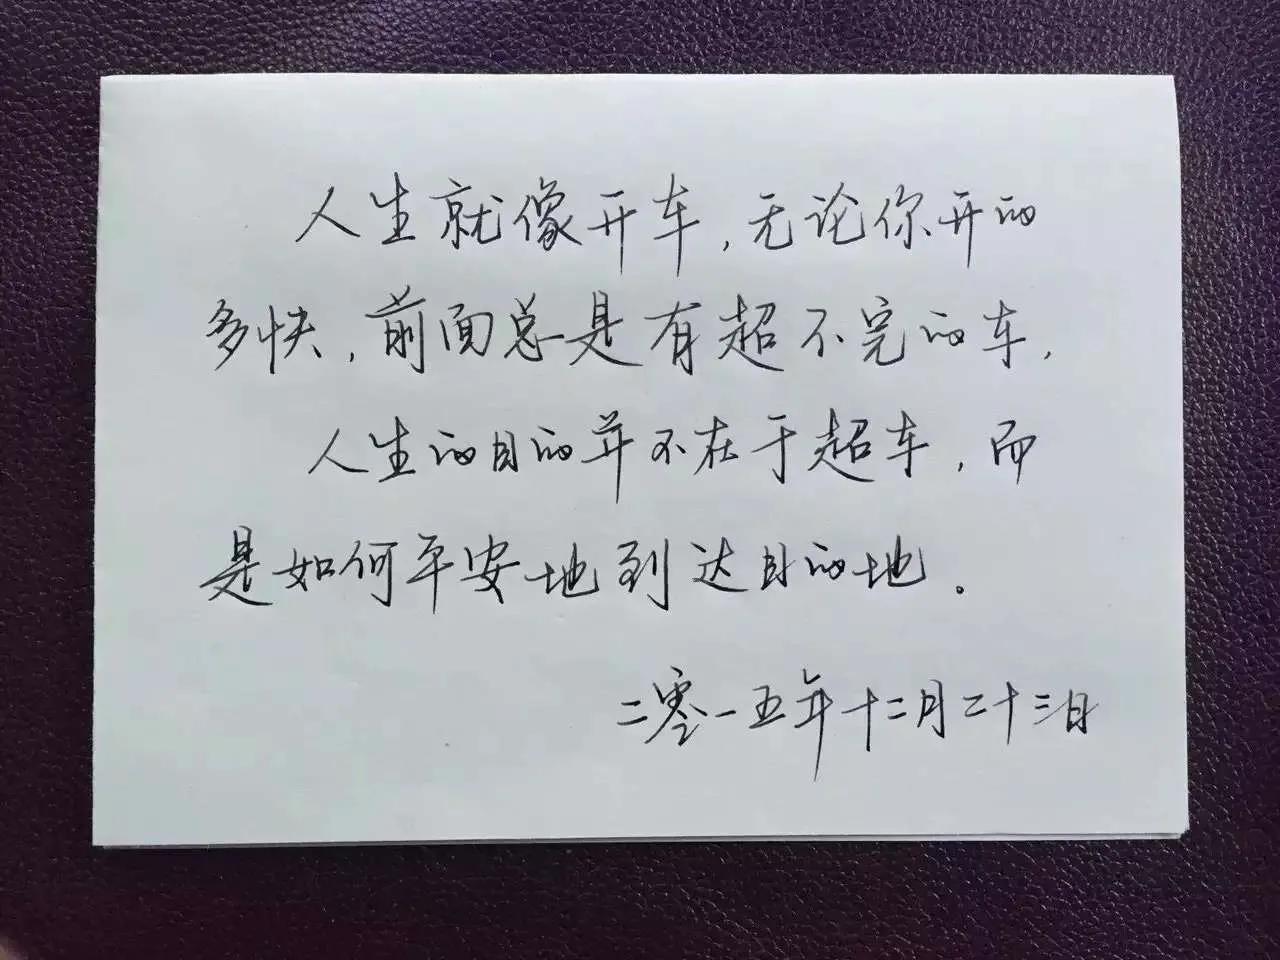 人生就像开车,无论你开的
多快,前面总是有超不完的车,
人生的目的并不在于超车,而
是如何平安地到达目的地。
二零一五年十二月二十三日